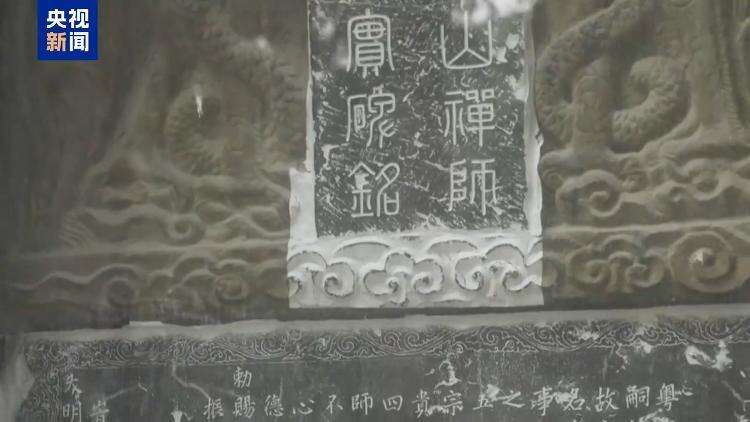 央视
新闻
山禪師
實碑銘
嗣
故
名
事
之
宗
貴
四
師
不
心
德
勅賜
振